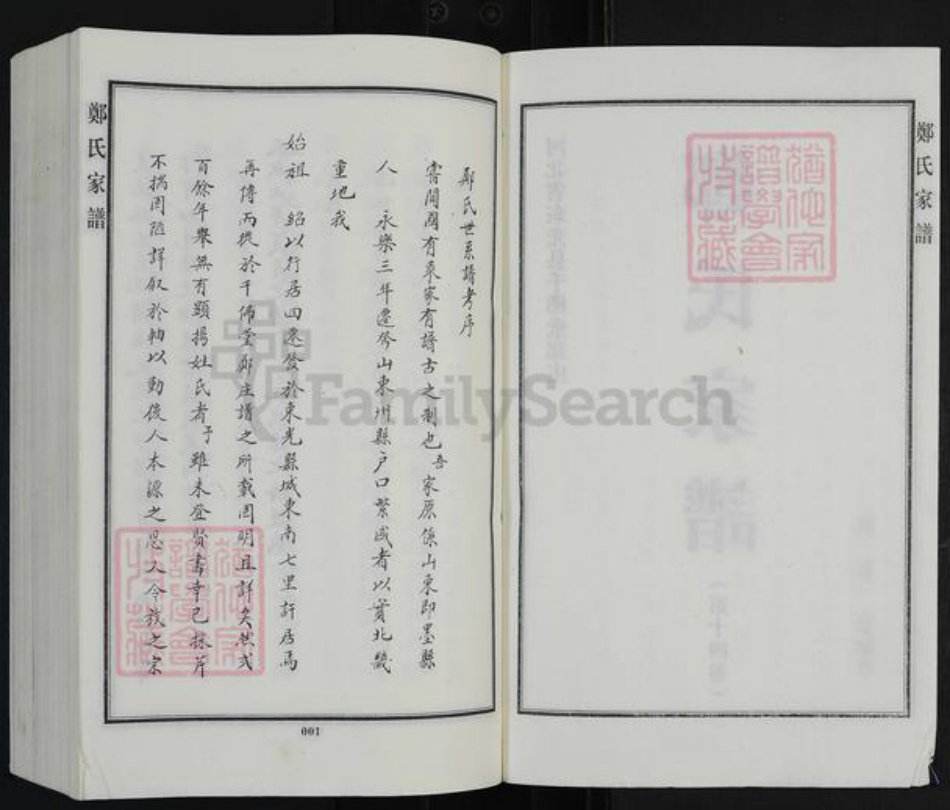 鄭氏家譜
鄭氏世系譜考序
嘗聞國有乘家有譜古之制也吾家原係山東即墨縣
人 永樂三年遷發山東州縣户口繁盛者以實北畿
重地我
始祖 紹以行居四遂發於東光縣城東南七里許居焉
再傳而從於千佛堂鄭庄墳之所載固明且詳矣然
百餘年舉無有顯揚姓氏者予雖未登賢書幸已採芹
不揣固陋詳叙於軸以動後人本源之思又令族之宗
001
鄭氏家譜
譜學會
特藏
譜學會
特藏
FamilySearch